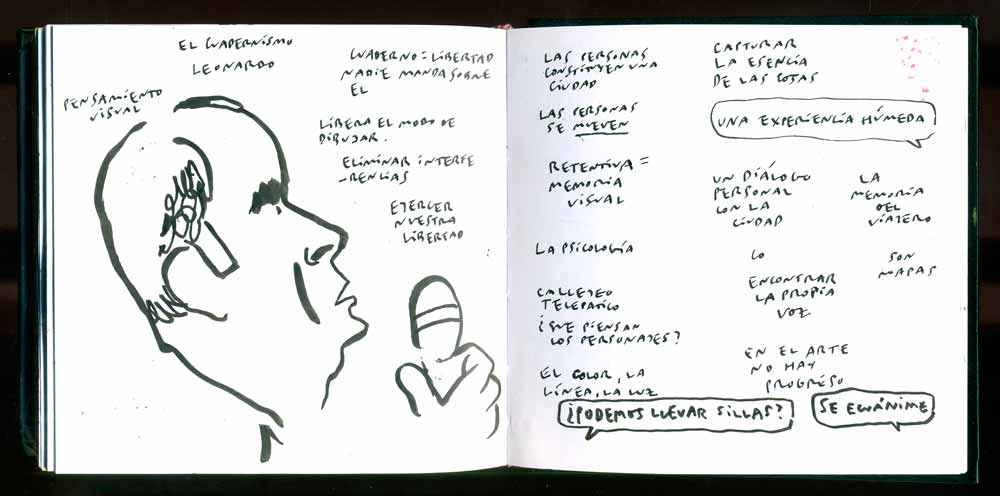 EL CUADERNISMO
LEONARDO
PENSAMIENTO
VISUAL
CUADERNO = LIBERTAD
NADIE MANDA SOBRE
EL
LIBERA EL MODO DE
DIBUJAR.
ELIMINAR INTERFE
-RENCIAS
EJERCER
NUESTRA
LIBERTAD
LAS PERSONAS
CONSTITUYEN UNA
CIUDAD
LAS PERSONAS
SE MUEVEN
RETENTIVA =
MEMORIA
VISUAL
LA PSICOLOGÍA
CALLEJEO
TELEPÁTICO
¿QUE PIENSAN
LOS PERSONAJES?
EL COLOR, LA
LÍNEA, LA LUZ
¿PODEMOS LLEVAR SILLAS?
CAPTURAR
LA ESENCIA
DE LAS COSAS
UNA EXPERIENCIA HÚMEDA
UN DIÁLOGO
PERSONAL
CON LA
CIUDAD
LA
MEMORIA
DEL
VIAJERO
LO
SON
MAPAS
ENCONTRAR
LA PROPIA
VOZ
EN EL ARTE
NO HAY
PROGRESO
SE ECUÁNIME